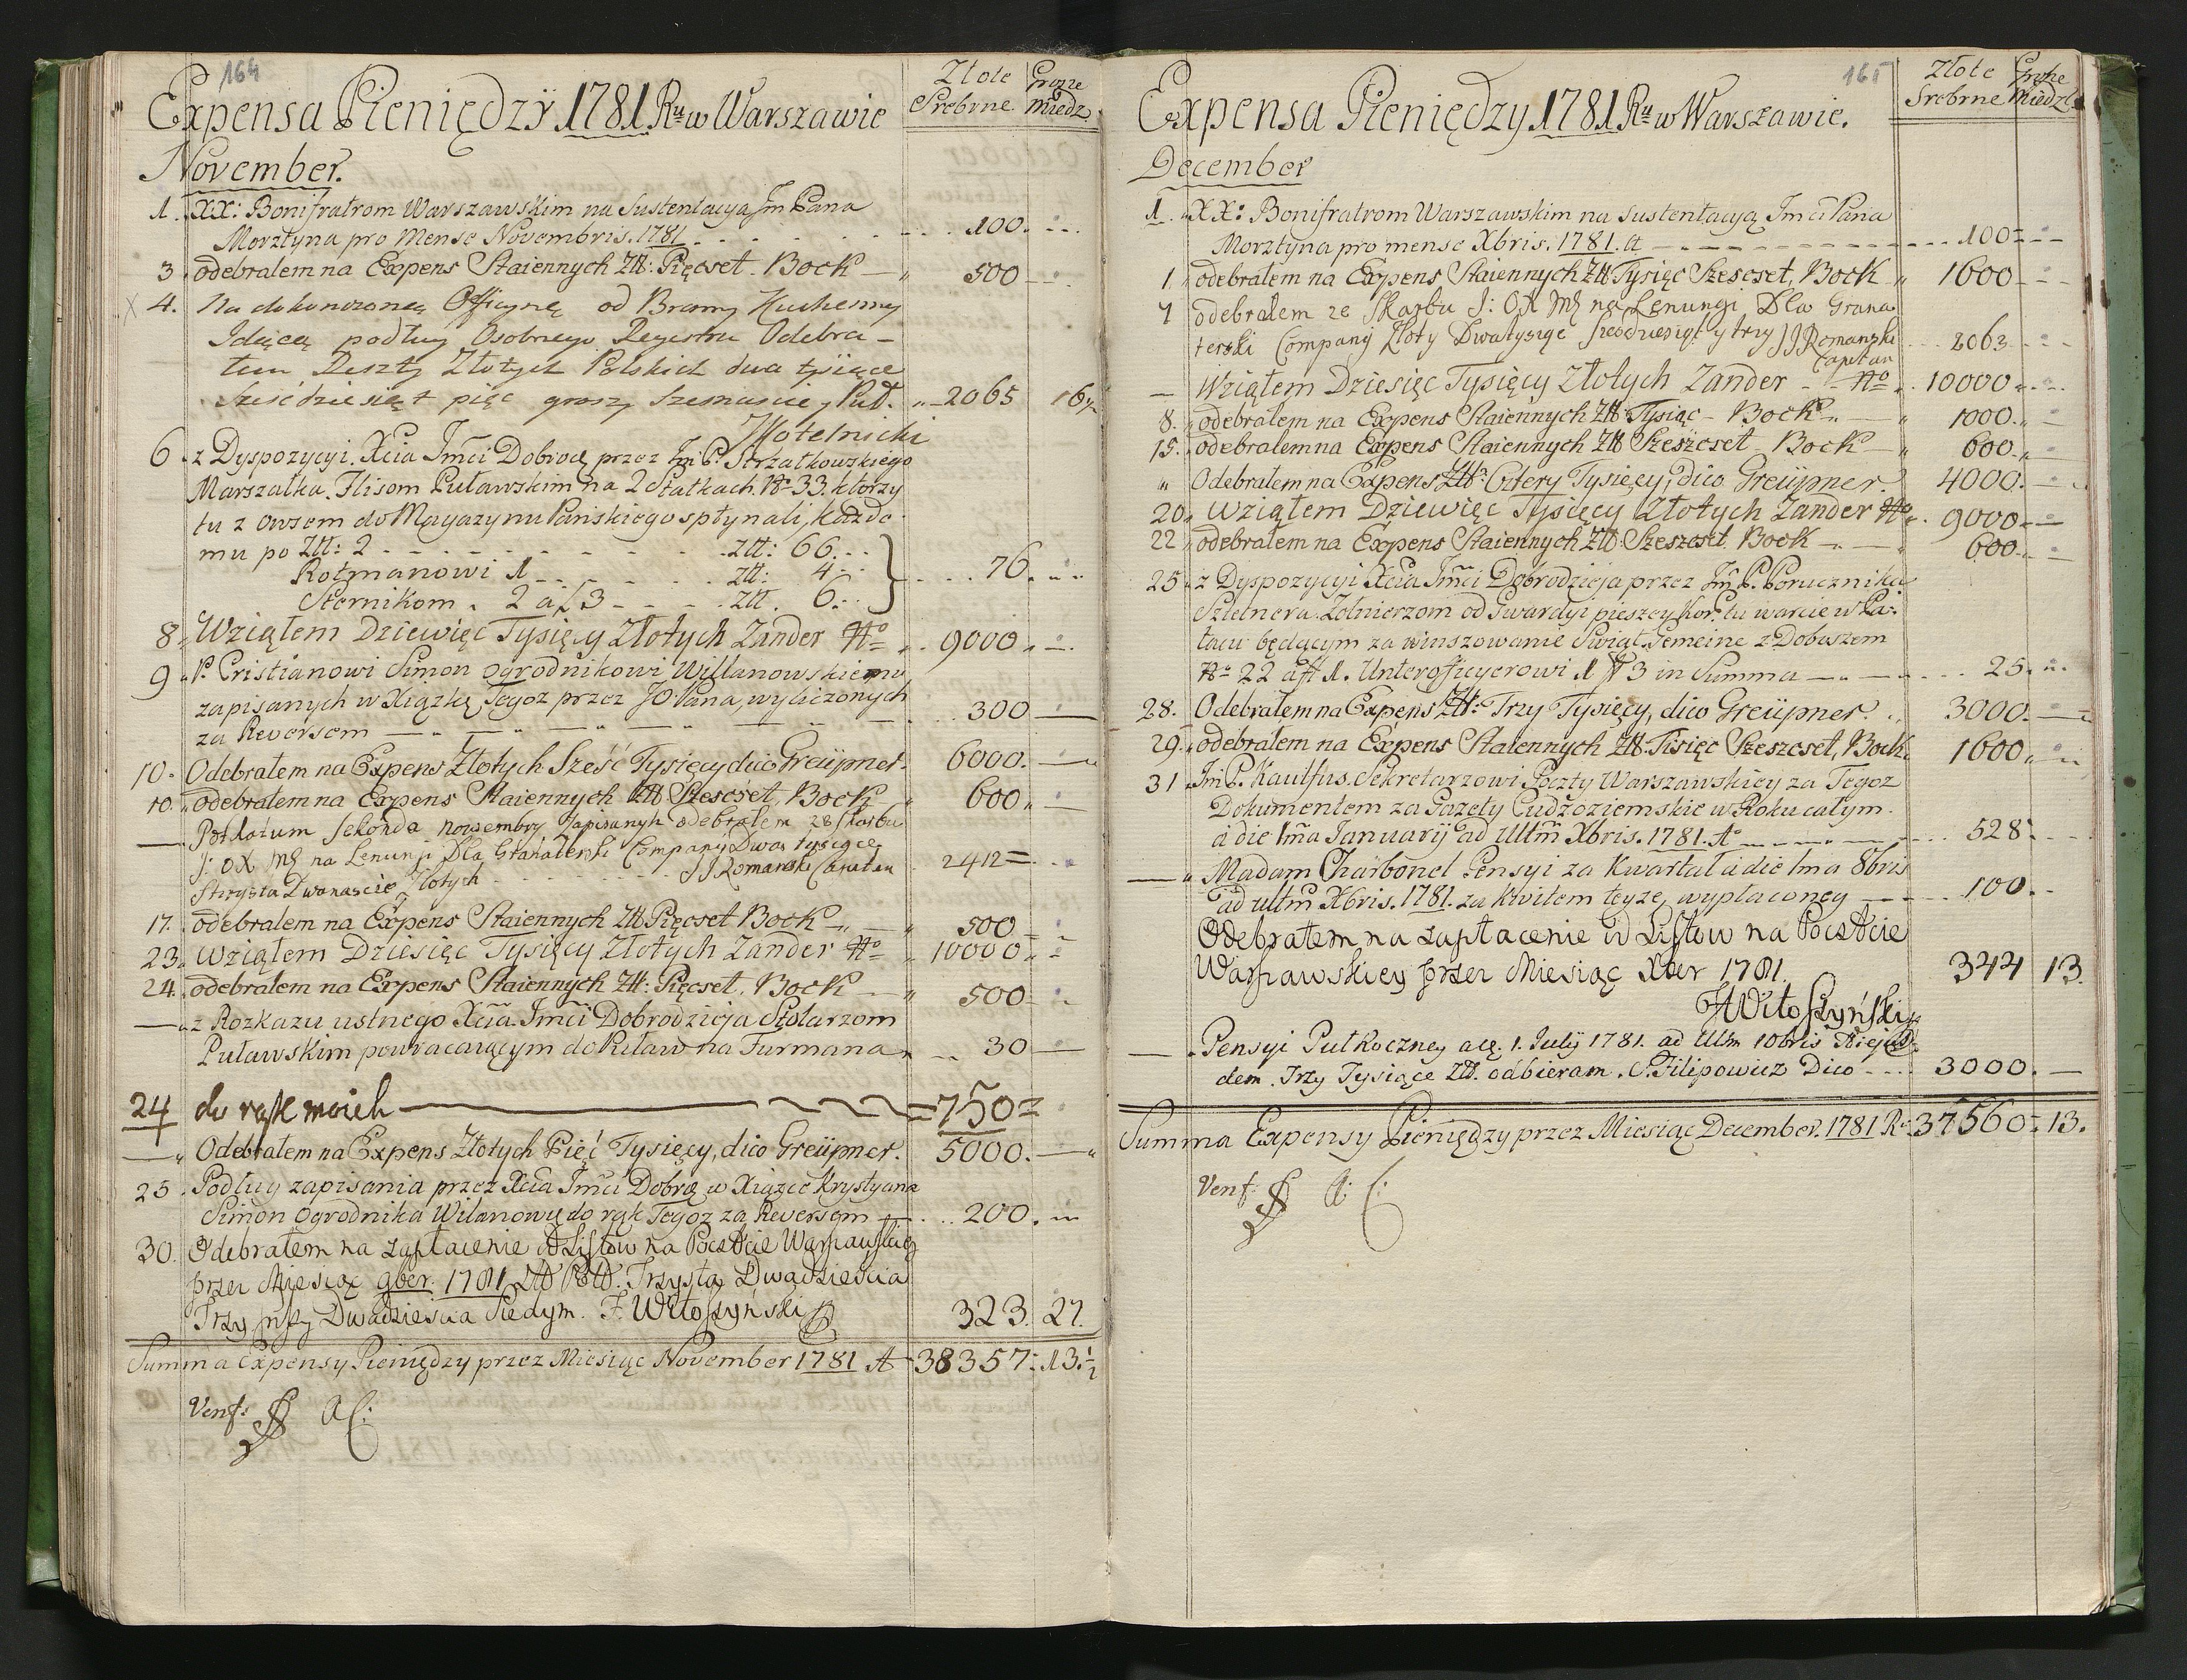 164
Expensa Pieniędzÿ 1781 Ru w Warszawie
Złote Grosze
Srebrne miedz.
November.
1. XX: Bonifratrom Warszawskim na Sustentacyą Jm Pana
Morztyna pro Mense Novembris. 1781 . . . . . 100. - - -
3 odebrałem na Expens Staiennych Złł: Pięcset. Bock — 500 - - -
4. Na dokonczoneą Officynę od Bramy Kuchenny
Idącą podług Osobnego Regestru Odebra-
łem Reszty Złotych Polskich dwa tysiące
Szescdziesiąt pięc groszy Szesnascie y Puł. 2065 16½
Kotelnicki
6 z Dyspozycyi Xcia Jmci Dobrodz przez Jm P. Strzałkowskiego
Marszałka. Flisom Puławskim na 2 Statkach No 33. ktorzy
tu z owsem do Magazynu Panskiego spłynali, każde-
mu po Złł: 2 - - - - - - Złł: 66. . .
Rotmanowi 1 - - - - - Złł: 4 - - } . . . 76. . .
Sternikom . 2 a f 3 - - - - Złł. 6. . .
8 Wziąłem Dziewięc Tysięcy Złotych Zander No . . 9000 . —
9 P. Cristianowi Simon ogrodnikowi Willanowskiemu
zapisanych w Xiązkę Tegoz przez JO Pana, wyliczonych
za Reversem — — — — — . . 300 —
10. Odebrałem na Expens Złotych Sześć Tysięcy dico Greüpner. 6000. —
10. odebrałem na Expens Staiennych Złł Szescset, Bock 600 „ —
— Post datum Sekonda nowembry zapisanyh odebrałem 28 skarbu
J: OX Mę na Lenungi Dla Granaterski Company Dwa tysięce
Sterysta Dwanascie Złotych - - - - J J Romanski Capitan 2412 =
17. odebrałem na Expens Staiennych Złł Pięcset Bock — 500 —
23. Wziąłem Dziesięc Tysięcy Złotych Zander No . 10000 „ —
24. odebrałem na Expens Staiennych Złł: Pięcset. Bock — 500 -
— z Rozkazu ustnego Xcia Jmci Dobrodzieja Stolarzom
Puławskim powracaiącym do Puław na Furmana . . 30 —
24 do rąk moich — 750 =
— Odebrałem na Expens Złotych Pięć Tysięcy, dico Greüpner. 5000. —
25 Podług zapisania przez Xcia Jmci Dobrą w Xiązce Krystyana
Simon ogrodnika Wilanowę do rąk Tegoz za Reversem — . . 200. —
30. Odebrałem na zapłacenie od Listow na Poczcie Warszawskiey
przez Miesiąc 9ber. 1781 Złł Poll. Trzysta Dwadziescia
Trzy gszy Dwadziescia Siedym. F. Witoszyński 323. 27.
Summa Expensy Pieniędzy przez Miesiąc November 1781 A 38357: 13.½
Venf: AC:
165
Expensa Pieniędzy 1781 Ru w Warszawie.
Złote Grosze
Srebrne Miedz.
December
1. XX: Bonifratrom Warszawskim na Sustentacyą Jmci Pana
Morztyna pro mense Xbris. 1781. A — - - - - - 100 = - -
1 odebrałem na Expens Staiennych Złł Tysiąc Szescset, Bock 1600 - - -
7 odebrałem ze Skarbu J: OX Mę na Lenungi Dla Grana
terski Company Złoty Dwatysięc szesdziesiąt y trzy J J Romanski - - 2063 - - -
Capitan
— Wziąłem Dziesięc Tysięcy Złotych Zander - - No . . 10000 „ —
8. odebrałem na Expens Staiennych Złł Tysiąc - Bock „ — 1000. —
15. odebrałem na Expens Staiennych Złł Szeszcset Bock — 600. —
„ Odebrałem na Expens Złł: Cztery Tysięcy, dico Greüpner. 4000. —
20. Wziąłem Dziewięc Tysięcy Złotych Zander No . . 9000 „ —
22. odebrałem na Expens Staiennych Złł: Szeszcset Bock — 600. —
25 z Dyspozycyi Xcia Jmci Dobrodzieja przez Jm P. Porucznika
Szletnera. Zołnierzom od Gwardyi pieszey Kor. tu warcie w Pa-
łacu będącym za winszowanie Swiąt. Gemeine z Doboszem
No 22 a f 1. Unterofficyerowi 1 f 3 in Summa — . . . 25. . .
28. Odebrałem na Expens Złł: Trzy Tysięcy, dico Greüpner. . 3000. —
29. odebrałem na Expens Staiennych Złł. Tisięc Szeszcset, Bock. 1600 „ —
31 Jm P. Kaulfus Sekretarzowi Poczty Warszawskiey za Tegoz
Dokumentem za Gazety Cudzoziemskie w Roku całym
a die 1ma Januarÿ ad Ultm Xbris. 1781. Ao — - - - 528 - - -
— Madam Charbonel Pensyi za Kwartał a die 1ma 8bris
ad ultm Xbris. 1781. za kwitem teyze, wypłaconey - - - 100. -
Odebrałem na zapłacenie od Listow na Poczcie
Warszawskiey przez Miesiąc Xber 1781. 344 13.
F Witoszyński
— Pensyi Pułroczney a 1. Julÿ 1781. ad Ultm 10bris
dem. Trzy Tysiące Złł. odbieram. S. Filipowicz Dico - - - 3000. —
Summa Expensy Pieniędzy przez Miesiąc December. 1781 Ru 37560 - 13.
Venf: A: C: